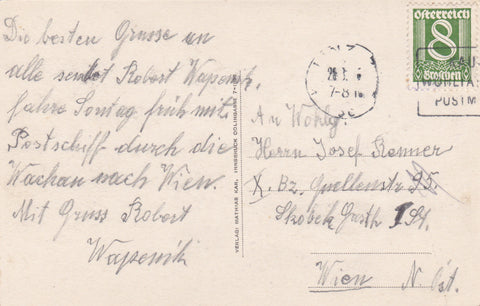 Die besten Grüsse an
alle sendet Robert Wapenik.
fahre Sonntag früh mit
Postschiff durch die
Wachau nach Wien.
Mit Gruss Robert
Wapenik
VERLAG: MATHIAS KARL, INNSBRUCK
Österreich
8
Groschen
LINZ
7-8
POSTM
An Wohlg.
Herrn Josef Renner
X. Bz. Quellenstr. 95.
I St.
Wien N. Öst.